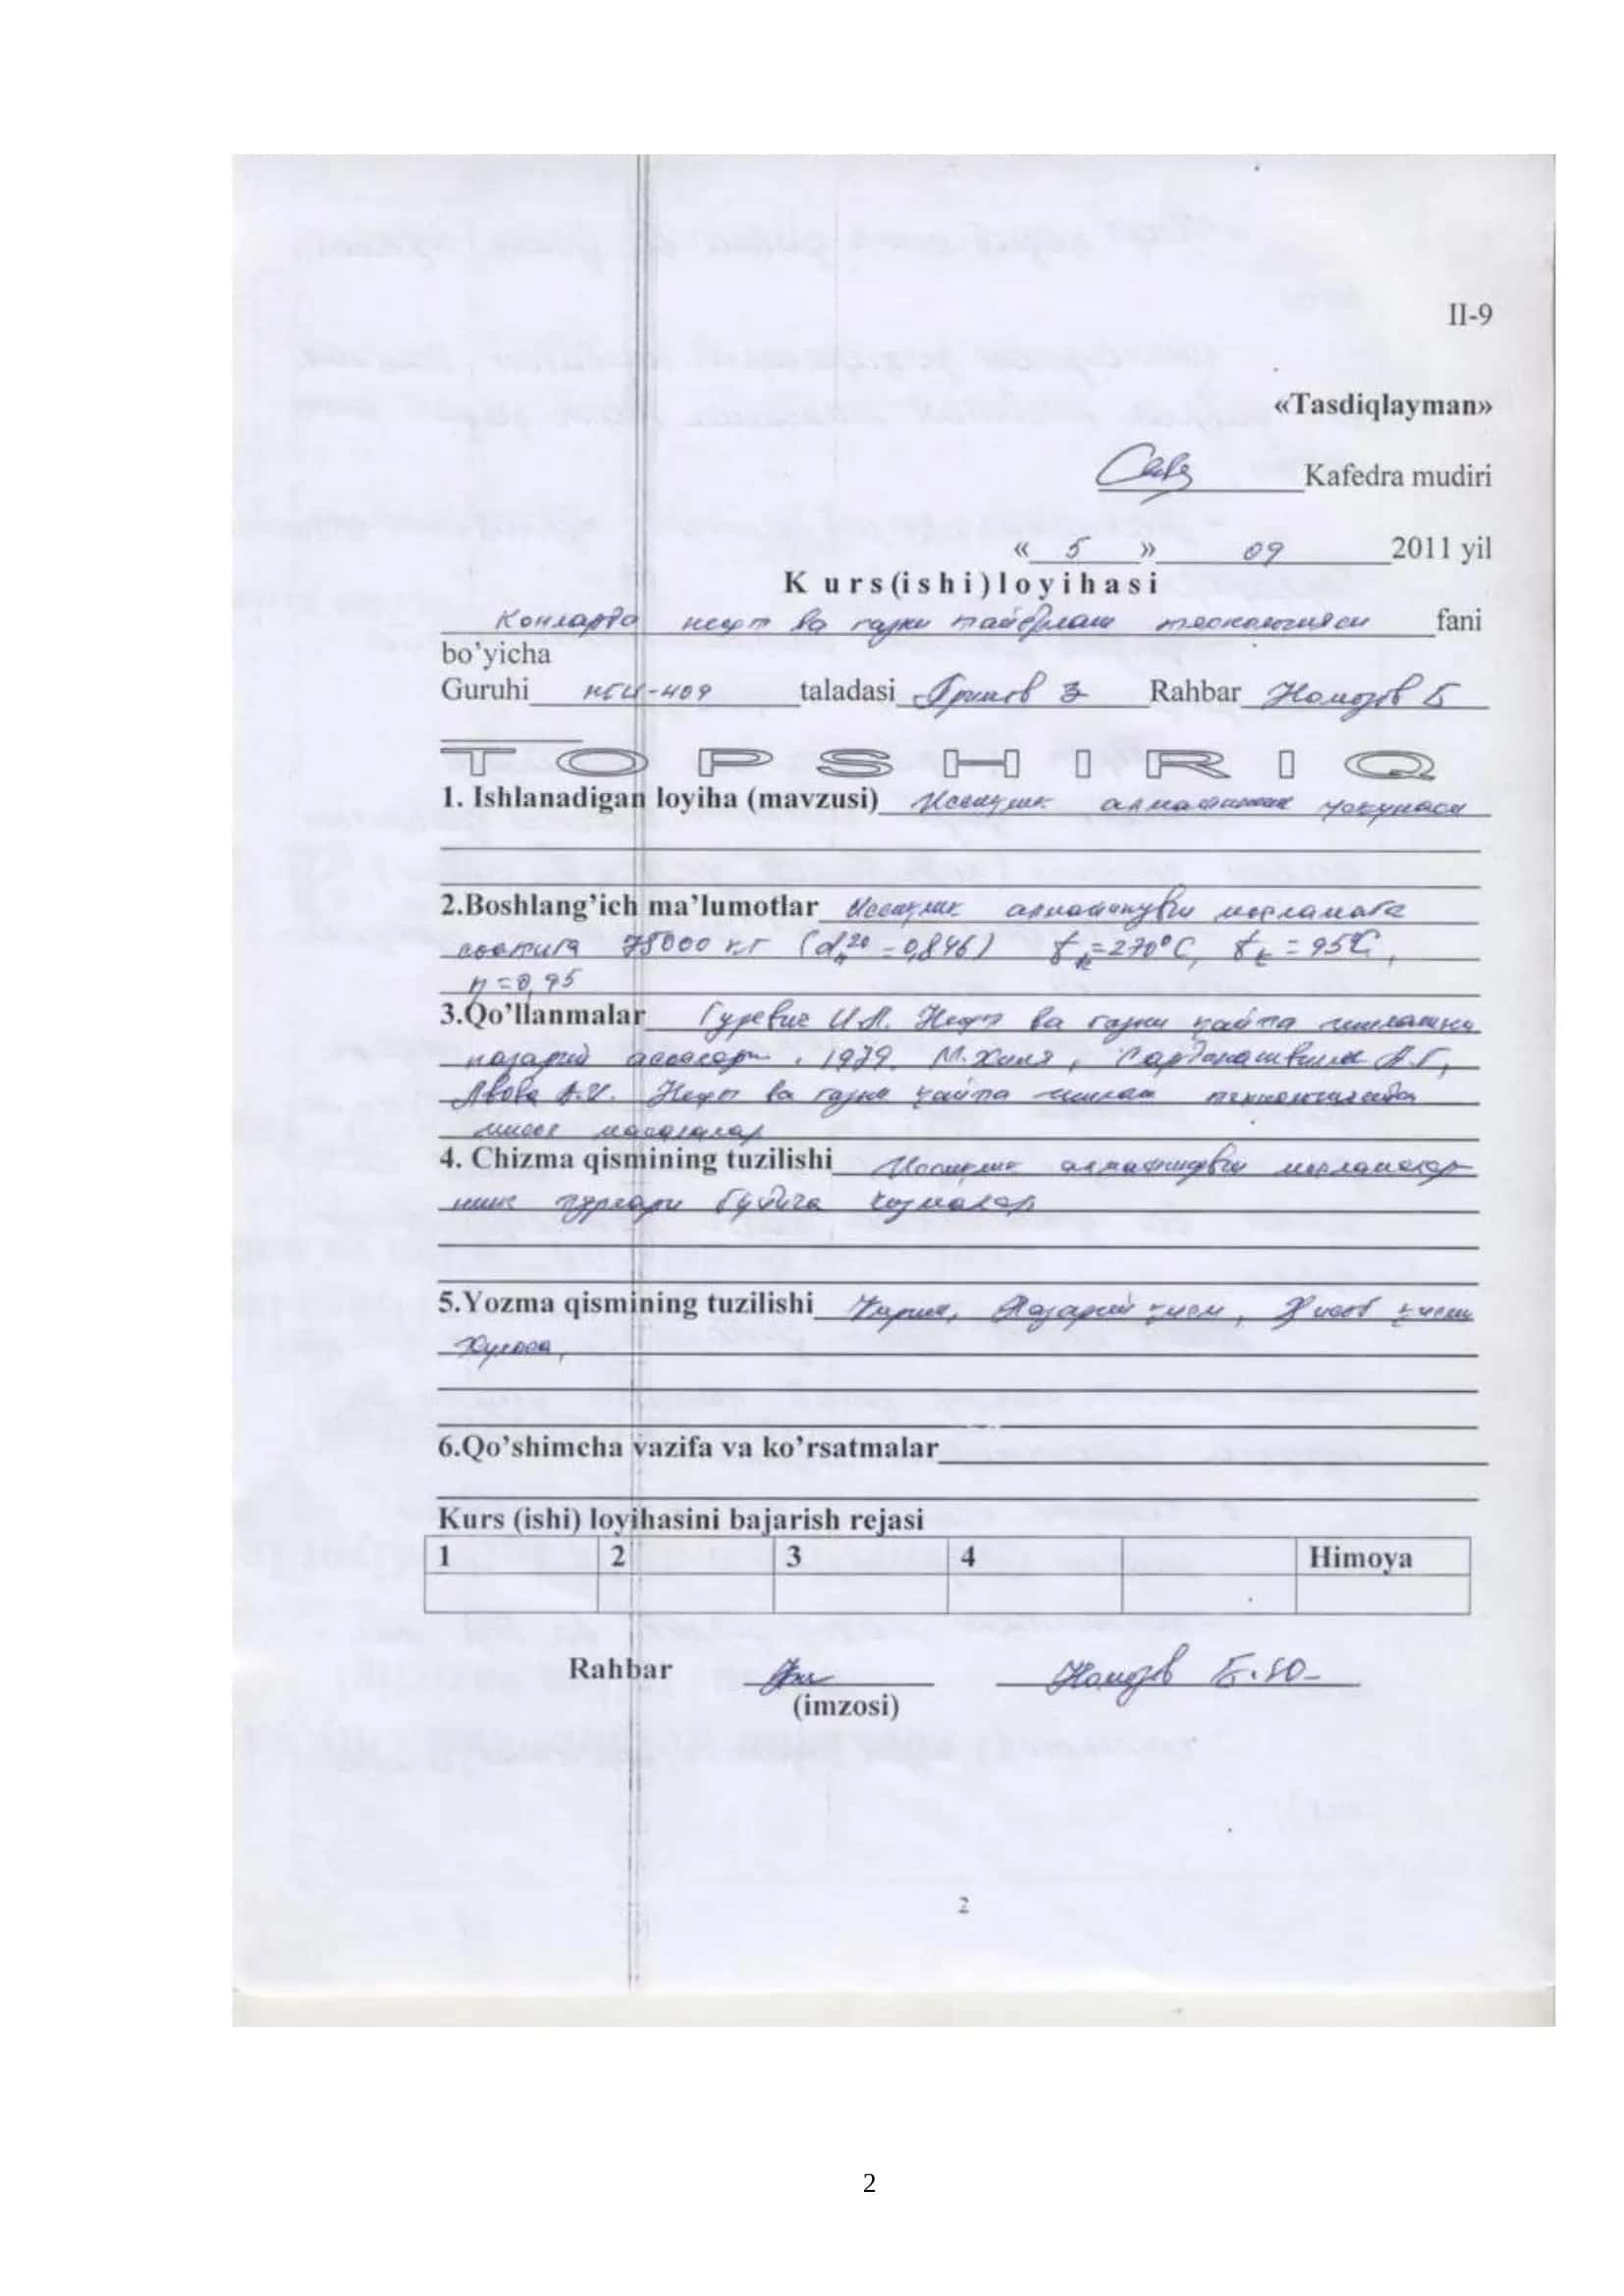 II-9
«Tasdiqlayman»
Kafedra mudiri
« 5 » 09 2011 yil
K u r s (i s h i) l o y i h a s i
Конларда нефт ва газни тайёрлаш технологияси fani
bo’yicha
Guruhi НГИ-409 taladasi З Rahbar Номозов Б
T O P S H I R I Q
1. Ishlanadigan loyiha (mavzusi) Иссиқлик алмашиниш
2.Boshlang’ich ma’lumotlar Иссиқлик алмашинувчи
соатига 75000 кг ( = 0,846) = 270°C, = 95°C,
η = 0,95
3.Qo’llanmalar Гуревич И.Л. Нефт ва газни қайта ишлашни
назарий асослари. 1979. М.Химя, А.Г,
Нефт ва газни қайта ишлаш
масалалар
4. Chizma qismining tuzilishi Иссиқлик алмашинувчи
нинг турлари бўйича чизмалар
5.Yozma qismining tuzilishi Кириш, Назарий қисм, Ҳисоб қисми
Хулоса,
6.Qo’shimcha vazifa va ko’rsatmalar
Kurs (ishi) loyihasini bajarish rejasi
1 2 3 4 Himoya
Rahbar Номозов Б.Ю.
(imzosi)
2
2